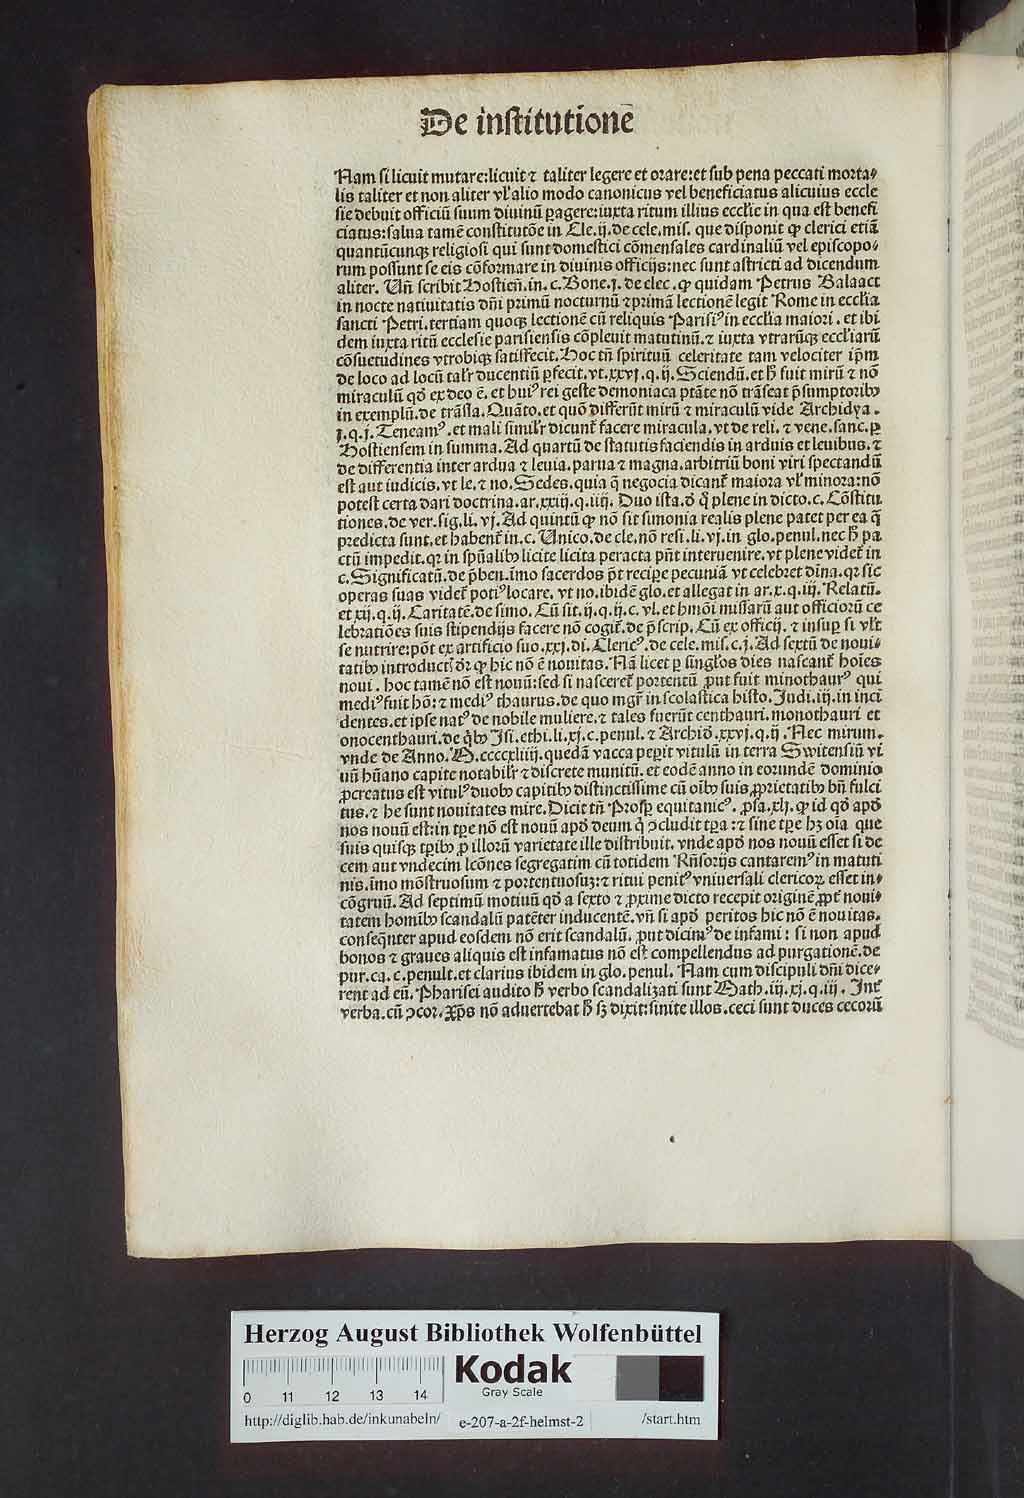 De institutionē
Nam si licuit mutare:licuit ⁊ taliter legere et orare:et sub pena peccati morta⸗
lis taliter et non aliter vl' alio modo canonicus vel beneficiatus alicuius eccle
sie debuit officiū suum diuinū ꝑagere:iuxta ritum illius eccl'ie in qua est benefi
ciatus:salua tamē constitutōe in Cle.ij.de cele.mis. que disponit ꝙ clerici etiā
quantūcunqꝫ religiosi qui sunt domestici cōmensales cardinaliū vel episcopo⸗
rum possunt se eis cōformare in diuinis officijs:nec sunt astricti ad dicendum
aliter. Vñ scribit Hostieñ.in.c.Bone.j. de elec. ꝙ quidam Petrus Balaact
in nocte natiuitatis dñi primū nocturnū ⁊ primā lectionē legit Rome in eccl'ia
sancti Petri.tertiam quoqꝫ lectionē cū reliquis Parisiꝰ in eccl'ia maiori. et ibi
dem iuxta ritū ecclesie parisiensis cōpleuit matutinū.⁊ iuxta vtrarūqꝫ eccl'iarū
cōsuetudines vtrobiqꝫ satisfecit. Hoc tñ spirituū celeritate tam velociter ip̄m
de loco ad locū tal'r ducentiū ꝑfecit.vt.xxvj.q.ij.Sciendū.et h̄ fuit mirū ⁊ nō
miraculū qd̄ ex deo ē. et huiꝰ rei geste demoniaca ptāte nō trāseat p̄sumptoribꝫ
in exemplū.de trāsla.Quāto.et quō differūt mirū ⁊ miraculū vide Archidya.
j.q.j.Teneamꝰ.et mali simil'r dicunt̄ facere miracula.vt de reli.⁊ vene.sanc.ꝑ
Hostiensem in summa. Ad quartū de statutis faciendis in arduis et leuibus.⁊
de differentia inter ardua ⁊ leuia.parua ⁊ magna.arbitriū boni viri spectandū
est aut iudicis.vt le.⁊ no.Sedes.quia q̄ negocia dicant̄ maiora vl' minora:nō
potest certa dari doctrina.ar.xxiij.q.iiij. Duo ista.d̄ q̄ plene in dicto.c. Cōstitu
tiones.de ver.sig.li.vj.Ad quintū ꝙ nō sit simonia realis plene patet per ea q̄
predicta sunt.et habent̄ in.c.Unico.de cle.nō resi.li.vj.in glo.penul.nec h̄ pa
ctū impedit.qꝛ in sp̄ualibꝫ licite licita peracta pn̄t interuenire.vt plene videt̄ in
c.Significatū.de p̄ben.imo sacerdos p̄t recipe pecuniā vt celebret diīna.qꝛ sic
operas suas videt̄ potiꝰ locare.vt no.ibidē glo.et allegat in ar.x.q.iij. Relatū.
et xij.q.ij.Caritatē.de simo. Cū sit.ij.q.ij.c.vl.et hmōi missarū aut officiorū ce
lebratiōes suis stipendijs facere nō cogit̄.de p̄scrip.Cū ex officij.⁊ insuꝑ si vl't
se nutrire:pōt ex artificio suo.xxj.di.Clericꝰ.de cele.mis.c.j.Ad sextū de noui⸗
tatibꝫ introductꝭ dr̄ ꝙ hic nō ē nouitas. Nā licet ꝑ singl'os dies nascant̄ hoīes
noui. hoc tamē nō est nouū:sed si nasceret̄ portentū ꝓut fuit minothaurꝰ qui
mediꝰ fuit hō:⁊ mediꝰ thaurus.de quo mgr̄ in scolastica histo.Judi.iij.in inci
dentes.et ipse natꝰ de nobile muliere.⁊ tales fuerūt centhauri.monothauri et
onocenthauri.de q̇bꝫ Isi.ethi.li.xj.c.penul.⁊ Archid̄.xxvj.q.ij.Nec mirum.
vnde de Anno.M.ccccxliiij.quedā vacca peꝑit vitulū in terra Switensiū vi
uū hūano capite notabil'r ⁊ discrete munitū.et eodē anno in eorundē dominio
ꝓcreatus est vitulꝰ duobꝫ capitibꝫ distinctissime cū oībꝫ suis ꝓprietatibꝫ bn̄ fulci
tus.⁊ he sunt nouitates mire.Dicit tñ Prosꝑ equitanicꝰ. ꝓsa.xlj.ꝙ id qd̄ apd̄
nos nouū est:in tꝑe nō est nouū apd̄ deum q̇ ꝯcludit tꝑa:⁊ sine tꝑe hꝫ oīa que
suis quisqꝫ tꝑibꝫ ꝓ illorū varietate ille distribuit.vnde apd̄ nos nouū esset si de
cem aut vndecim lcōnes segregatim cū totidem Rn̄sorijs cantaremꝰ in matuti
nis.imo mōstruosum ⁊ portentuosuꝫ:⁊ ritui penitꝰ vniuersali clericoꝝ esset in⸗
cōgruū.Ad septimū motiuū qd̄ a sexto ⁊ ꝓxime dicto recepit originē ꝓpt̄ noui⸗
tatem homībꝫ scandalū patēter inducentē.vñ si apd̄ peritos hic nō ē nouitas.
conseqn̄ter apud eosdem nō erit scandalū. ꝓut dicimꝰ de infami: si non apud
bonos ⁊ graues aliquis est infamatus nō est compellendus ad purgationē.de
pur.ca.c.penult.et clarius ibidem in glo.penul. Nam cum discipuli dñi dice⸗
rent ad eū. Pharisei audito h̄ verbo scandalizati sunt Math.iij.xj.q.iij. Int̄
verba.cū ꝯcor.Xp̄s nō aduertebat h̄ sꝫ dixit:sinite illos.ceci sunt duces cecorū
Herzog August Bibliothek Wolfenbüttel
Kodak
Gray Scale
0 11 12 13 14
http://diglib.hab.de/inkunabeln/ e-207-a-2f-helmst-2 /start.htm